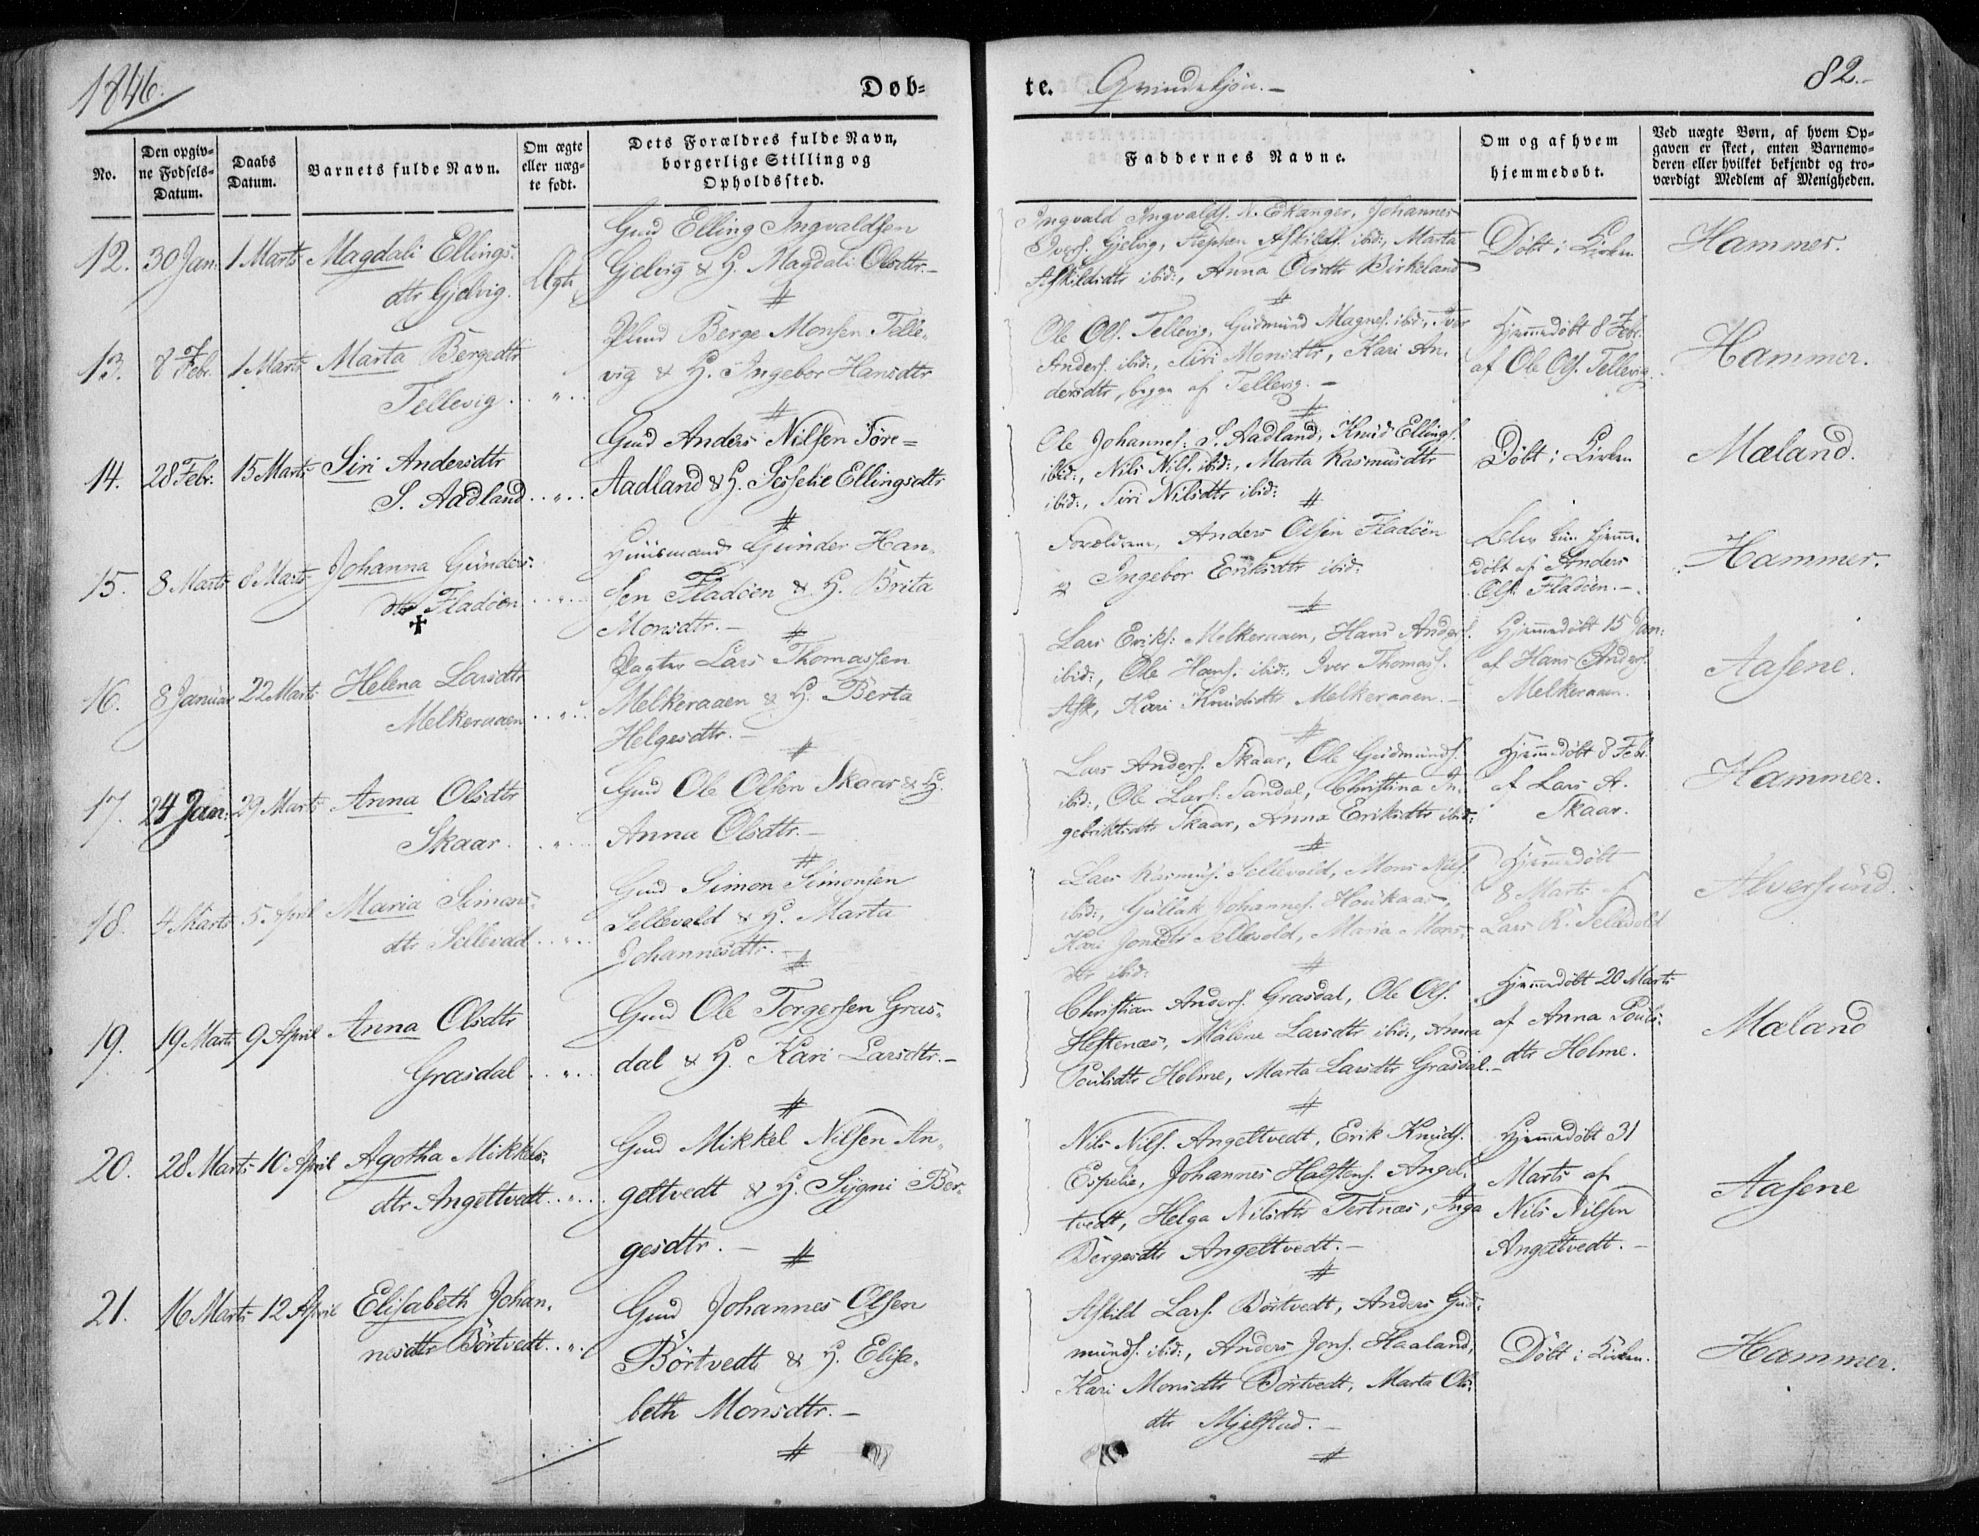 1846.
Døb-
te. Qvindekjön.-
82.-
No.
Den opgiv-
ne Fødsels-
Datum.
Daabs
Datum.
Barnets fulde Navn.
Om ægte
eller uæg-
te født.
Dets Forældres fulde Navn,
borgerlige Stilling og
Opholdssted.
Faddernes Navne.
Om og af hvem
hjemmedøbt.
Ved uægte Børn, af hvem Op-
gaven er skeet, enten Barnemo-
deren eller hvilket bekjendt og tro-
værdigt Medlem af Menigheden.
12. 30 Jan: 1 Marts Magdali Ellings-
dtr Gjelvig. Ægte
Gmd Elling Ingvaldsen
Gjelvig & H. Magdali Olsdtr.-
Ingvald Ingvalds. N. Eikanger, Johannes
Ivers. Gjelvig, Stephen Askilds. ibid:, Marta
Askildsdtr ibid:, Anna Olsdtr Birkeland
Döbt i Kirken
Hammer.
13. 8 Febr. 1 Marts Marta Bergesdtr
Tellevig. . „ .
Berge Monsen Telle-
vig & H. Ingebor Hansdtr
Ole Ols. Tellevig, Gudmund Magnes. ibid:, Iver
Anders. ibid:, Siri Monsdtr, Kari An-
dersdtr, begge af Tellevig. -
Hjemmedöbt 8 Febr.
af Ole Ols. Tellevig.
Hammer.
14. 28 Febr. 15 Marts Siri Andersdtr
S. Aadland . . „ . .
Gmd Anders Nilsen Söre-
Aadland & H. Sesselie Ellingsdtr
Ole Johannes: S. Aadland, Knud Ellings.
ibid:, Nils Nils. ibid:, Marta Rasmusdtr
ibid:, Siri Nilsdtr ibid:
Döbt i Kirken
Mæland.
15. 8 Marts 8 Marts Johanna Gunders-
dtr Fladöen . . „ . .
Huusmand Gunder Han-
sen Fladöen & H. Brita
Monsdtr. -
Forældrene, Anders Olsen Fladöen
& Ingebor Eriksdtr ibid:
Blev kun hjemme-
döbt af Anders
Ols. Fladöen. -
Hammer.
16. 8 Januar 22 Marts Helena Larsdtr
Melkeraaen . . „ . .
Pagter Lars Thomassen
Melkeraaen & H. Berta
Helgesdtr. -
Lars Eriks: Melkeraaen, Hans Anders.
ibid:, Ole Hans. ibid:, Iver Thomass.
Ask, Kari Knudsdtr Melkeraaen. -
Hjemmedöbt 15 Jan:
af Hans Anders.
Melkeraaen.
Aasene.
17. 24 Jan: 29 Marts Anna Olsdtr
Skaar. . „ . .
Gmd Ole Olsen Skaar & H.
Anna Olsdtr. -
Lars Anders. Skaar, Ole Gudmunds.
ibid:, Ole Lars: Sandal, Christina In-
gebriktsdtr Skaar, Anna Eriksdtr ibid:
Hjemmedöbt 8 Febr.
af Lars A.
Skaar.
Hammer.
18. 4 Marts 5 April Maria Simons-
dtr Sellevad . . „ . .
Gmd Simon Simonsen
Sellevold & H. Marta
Johannesdtr. -
Lars Rasmus. Sellevold, Mons Nils.
ibid:, Gullak Johannes. Houkaas,
Kari Jonsdtr Sellevold, Maria Mons-
dtr ibid:
Hjemmedöbt
8 Marts af
Lars R. Sellevold
Alversund.
19. 19 Marts 9 April Anna Olsdtr
Grasdal . . „ . .
Gmd Ole Torgersen Gras-
dal & H. Kari Larsdtr. -
Christian Anders. Grasdal, Ole Ols.
Hestenæs, Malene Larsdtr ibid:, Anna
Poulsdtr Holme, Marta Larsdtr Grasdal. -
Hjemmedöbt 20 Marts
af Anna Pouls-
dtr Holme.
Mæland
20. 28 Marts 10 April Agotha Mikkels-
dtr Angeltvedt . . „ . .
Gmd Mikkel Nilsen An-
geltvedt & H. Sygni Ber-
gesdtr. -
Nils Nils. Angeltvedt, Erik Knuds.
Espelie, Johannes Halstens. Angel-
tvedt, Helga Nilsdtr Tertnæs, Inga
Bergesdtr Angeltvedt. -
Hjemmedöbt 31
Marts af
Nils Nilsen
Angeltvedt. -
Aasene
21. 16 Marts 12 April Elisabeth Johan-
nesdtr Börtvedt . . „ .
Gmd Johannes Olsen
Börtvedt & H. Elisa-
beth Monsdtr. -
Askild Lars. Börtvedt, Anders Gud-
munds. ibid:, Anders Jons. Haaland,
Kari Monsdtr Börtvedt, Marta Ols-
dtr Mjelstad. -
Döbt i Kirken.
Hammer.